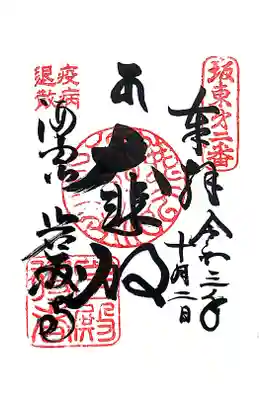 坂東第二番
奉拝
令和三年
十月二日
大悲殿
疫病
退散
海雲山
岩殿寺